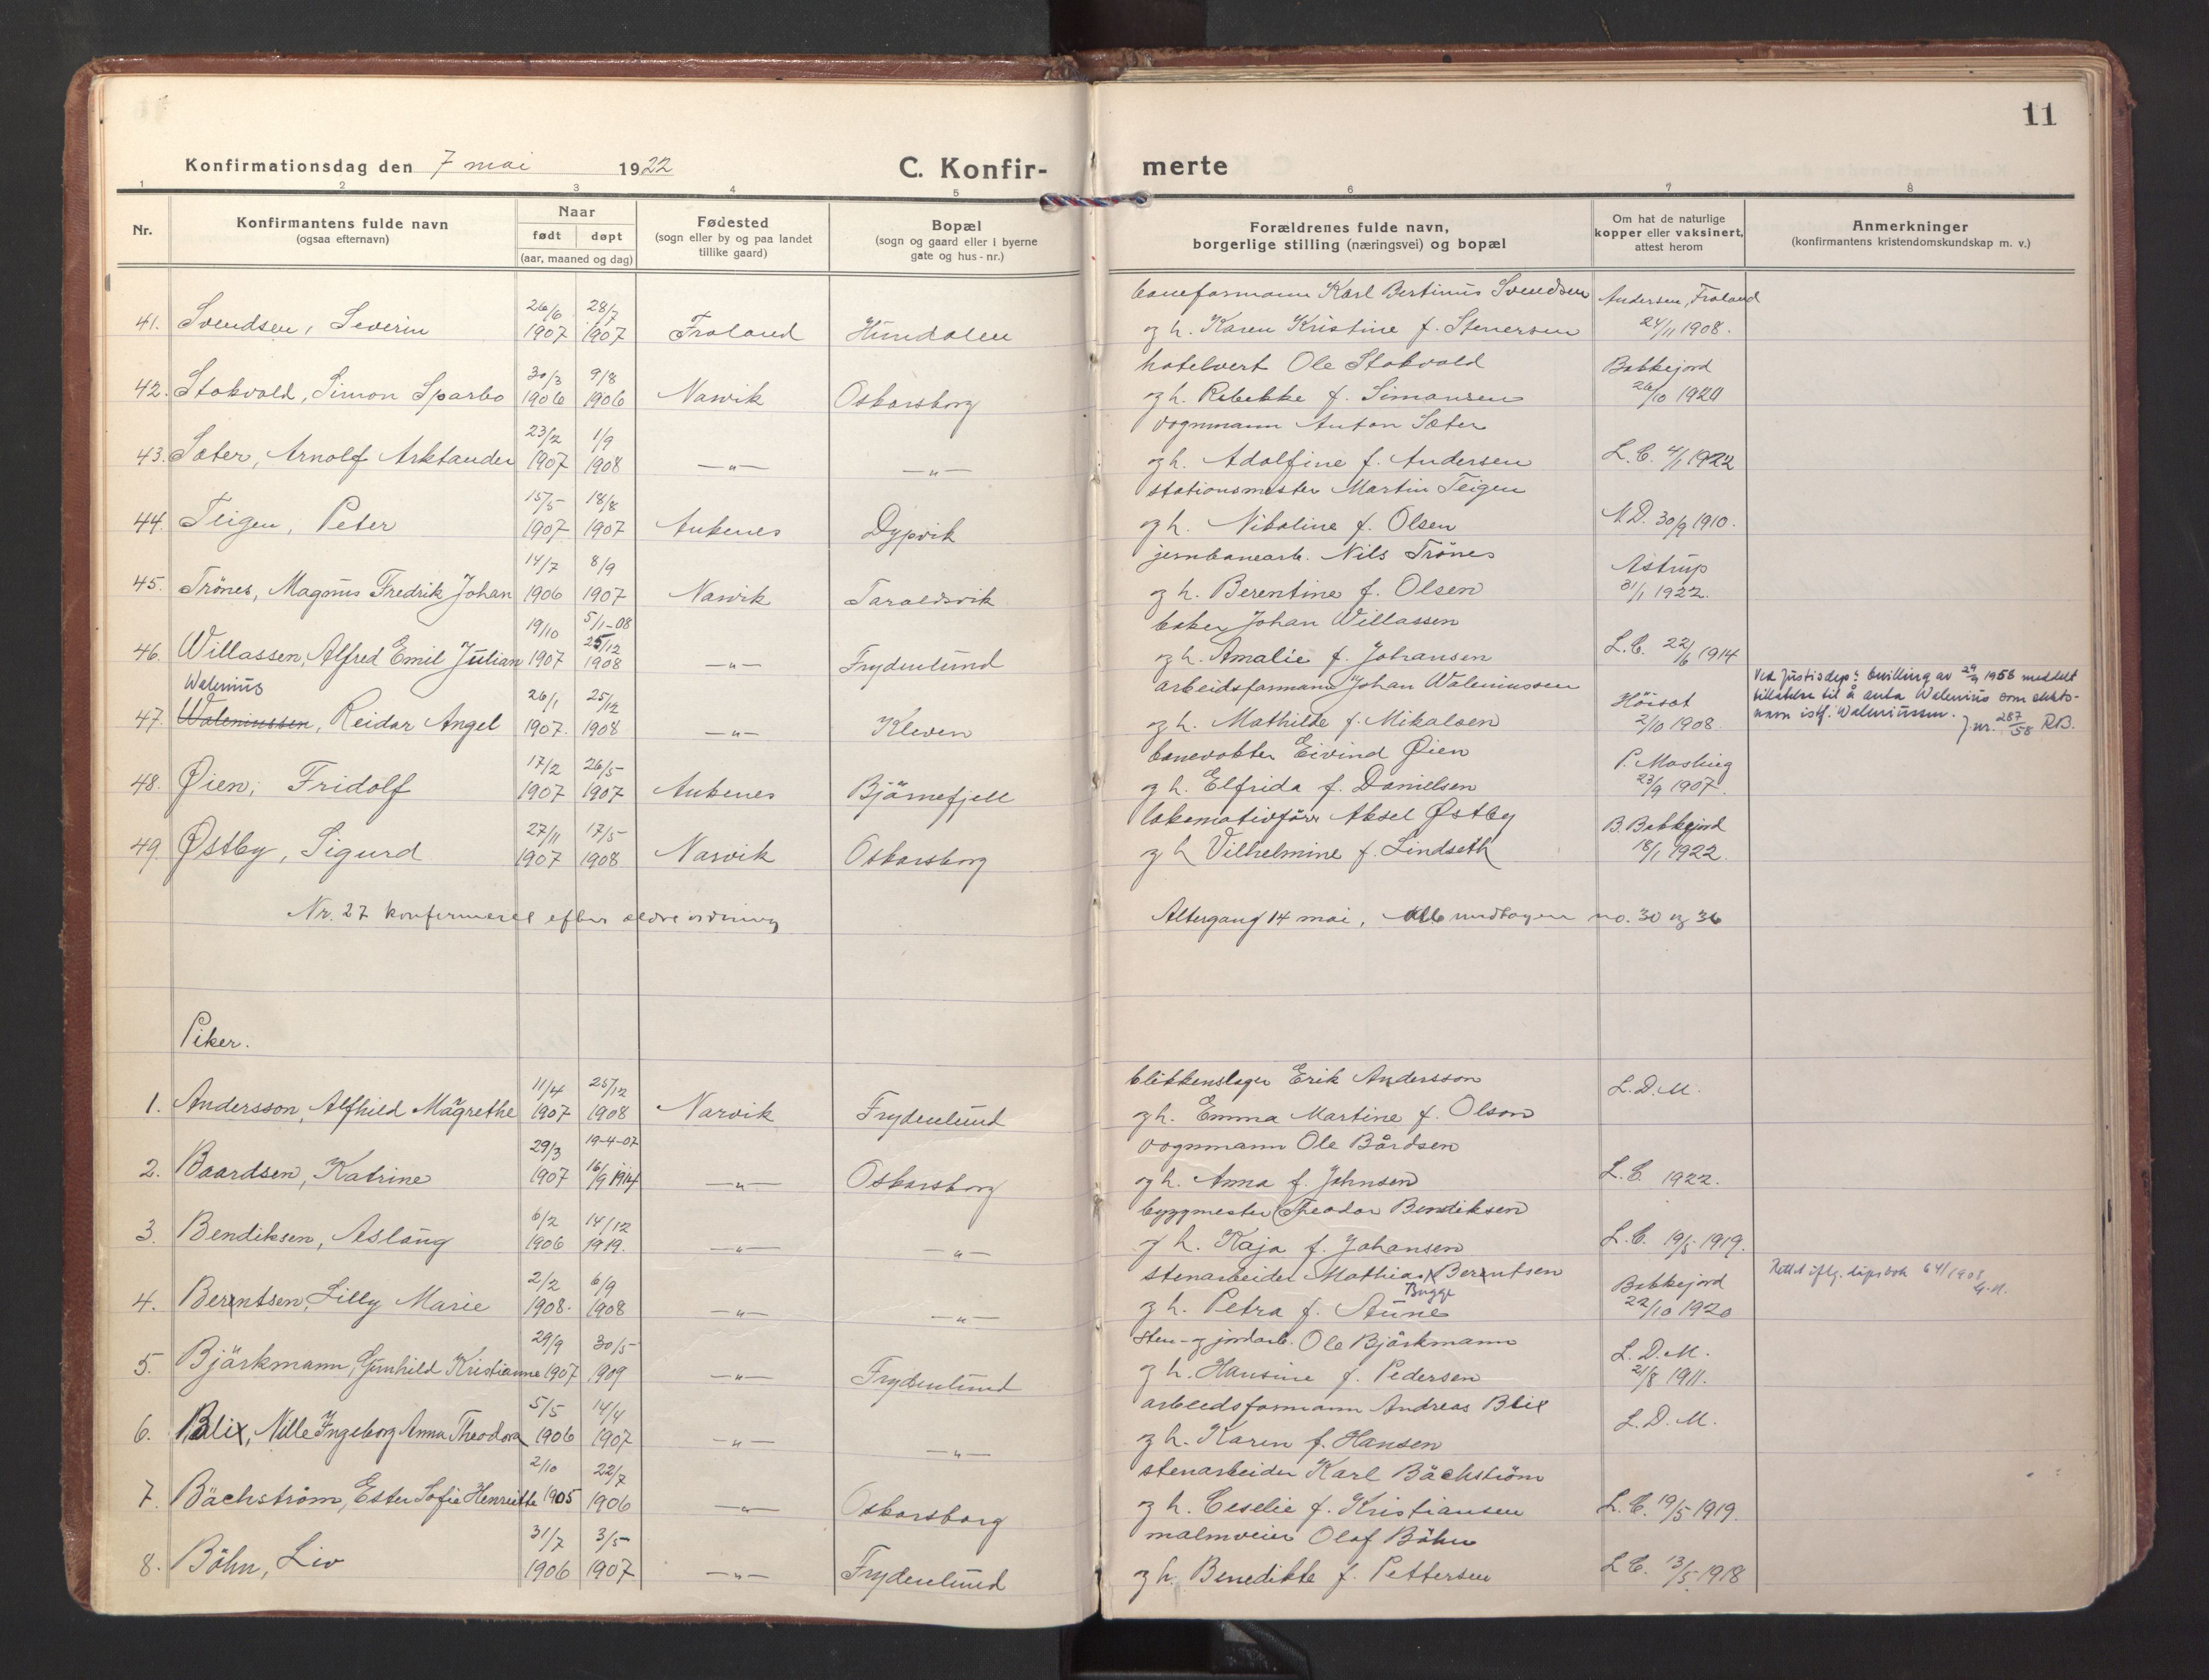 11
Konfirmationsdag den 7 mai 1922 C. Konfir- merte
1 2 3 4 5 6 7 8
Nr. Konfirmantens fulde navn (ogsaa efternavn) Naar født døpt (aar, maaned og dag) Fødested (sogn eller by og paa landet tillike gaard) Bopæl (sogn og gaard eller i byerne gate og hus-nr.) Forældrenes fulde navn, borgerlige stilling (næringsvei) og bopæl Om hat de naturlige kopper eller vaksinert, attest herom Anmerkninger (konfirmantens kristendomskundskap m. v.)
26/6 28/7 baneformann Karl Bertinus Svendsen Andersen, Froland
41. Svendsen, Severin 1907 1907 Froland Hundalen og h. Karen Kristine f. Stenersen 24/11 1908.
30/3 9/8 hotelvert Ole Stokvold Bakkejord
42. Stokvold, Simon Sparbo 1906 1906 Narvik Oskarsborg og h. Rebekke f. Simonsen 26/10 1920
23/2 1/9 vognmann Anton Sæter
43. Sæter, Arnolf Arktander 1907 1908 —„— —„— og h. Adolfine f. Andersen L. C. 4/1 1922
15/5 18/8 stationsmester Martin Teigen
44. Teigen, Peter 1907 1907 Ankenes Dypvik og h. Nikoline f. Olsen M.D. 30/9 1910.
14/7 8/9 jernbanearb. Nils Trönes Astrup
45. Trönes, Magnus Fredrik Johan 1906 1907 Narvik Taraldsvik og h. Berentine f. Olsen 31/1 1922.
19/10 5/1-08 baker Johan Willassen
46. Willassen, Alfred Emil Julian 1907 25/12 1908 —„— Frydenlund og h. Amalie f. Johansen L. C. 22/6 1914
Walenius 26/1 25/12 arbeidsformann Johan Waleniussen Höisæt
47. Waleniussen, Reidar Angel 1907. 1908 —„— Kleven og h. Mathilde f. Mikalsen 2/10 1908.
Ved Justisdep: bevilling av 29/9 1958 meddelt
tillatelse til å anta Walenius som slekts-
navn istf. Waleniussen.
J.nr. 287/58 RB.
17/2 26/5 banevokter Eivind Øien P. Mosling
48. Øien, Fridolf 1907 1907 Ankenes Björnefjell og h. Elfrida f. Danielsen 23/9 1907.
27/11 17/5 lokomotivförer Aksel Østby B. Bakkejord
49. Østby, Sigurd 1907 1908 Narvik Oskarsborg og h Vilhelmine f. Lindseth 18/1 1922.
Nr. 27 konfirmeret efter ældre ordning Altergang 14 mai, alle undtagen no. 30 og 36
Piker.
11/4 25/12 blikkenslager Erik Andersson L. D. M.
1. Andersson, Alfhild Magrethe 1907 1908 Narvik Frydenlund og h. Emma Martine f. Olson
29/3 19-4-07 vognmann Ole Bårdsen
2. Baardsen, Katrine 1907 16/9 1914 —„— Oskarsborg og h. Anna f. Johnsen L. C. 1922.
6/2 14/12 byggmester Theodor Bendiksen
3. Bendiksen, Aslaug 1906 1919. —„— —„— og h. Kaja f. Johansen L. C. 19/5 1919.
2/2 6/9 stenarbeider Mathias Berentsen Bakkejord
4. Berentsen, Lilly Marie 1908. 1908 —„— —„— og h. Petra f. Aune Bugge 22/10 1920
Rettet iflg. dåpsbok 64/1908 G.H.
29/9 30/5 sten- og jordarb. Ole Björkmann L. D. M.
5. Björkmann, Gunhild Kristianne 1907 1909 —„— Frydenlund og h. Hansine f. Pedersen 21/8 1911.
5/5 14/4 arbeidsformann Andreas Blix L. D. M.
6. Blix, Nille Ingeborg Anna Theodora 1906 1907 —„— —„— og h. Karen f. Hansen
2/10 22/7 stenarbeider Karl Bächström
7. Bächström, Ester Sofie Henriette 1905 1906 —„— Oskarsborg og h. Ceselie f. Kristiansen L. C. 19/5 1919.
31/7 3/5 malmveier Olaf Böhn
8. Böhn, Liv 1906 1907 —„— Frydenlund og h. Benedikte f. Pettersen L C. 13/5 1918